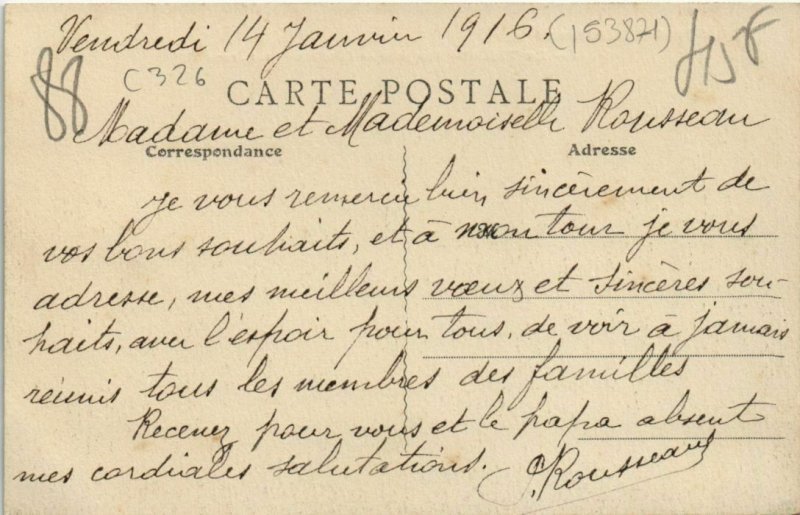 Vendredi 14 Janvier 1916. (153871)
88 C 326
CARTE POSTALE
Madame et Mademoiselle Rousseau
Correspondance Adresse
Je vous remercie bien sincèrement de
vos bons souhaits, et à mon tour je vous
adresse, mes meilleurs vœux et sincères sou-
haits, avec l'espoir pour tous, de voir à jamais
réunis tous les membres des familles
Recevez pour vous et le papa absent
mes cordiales salutations. Rousseau